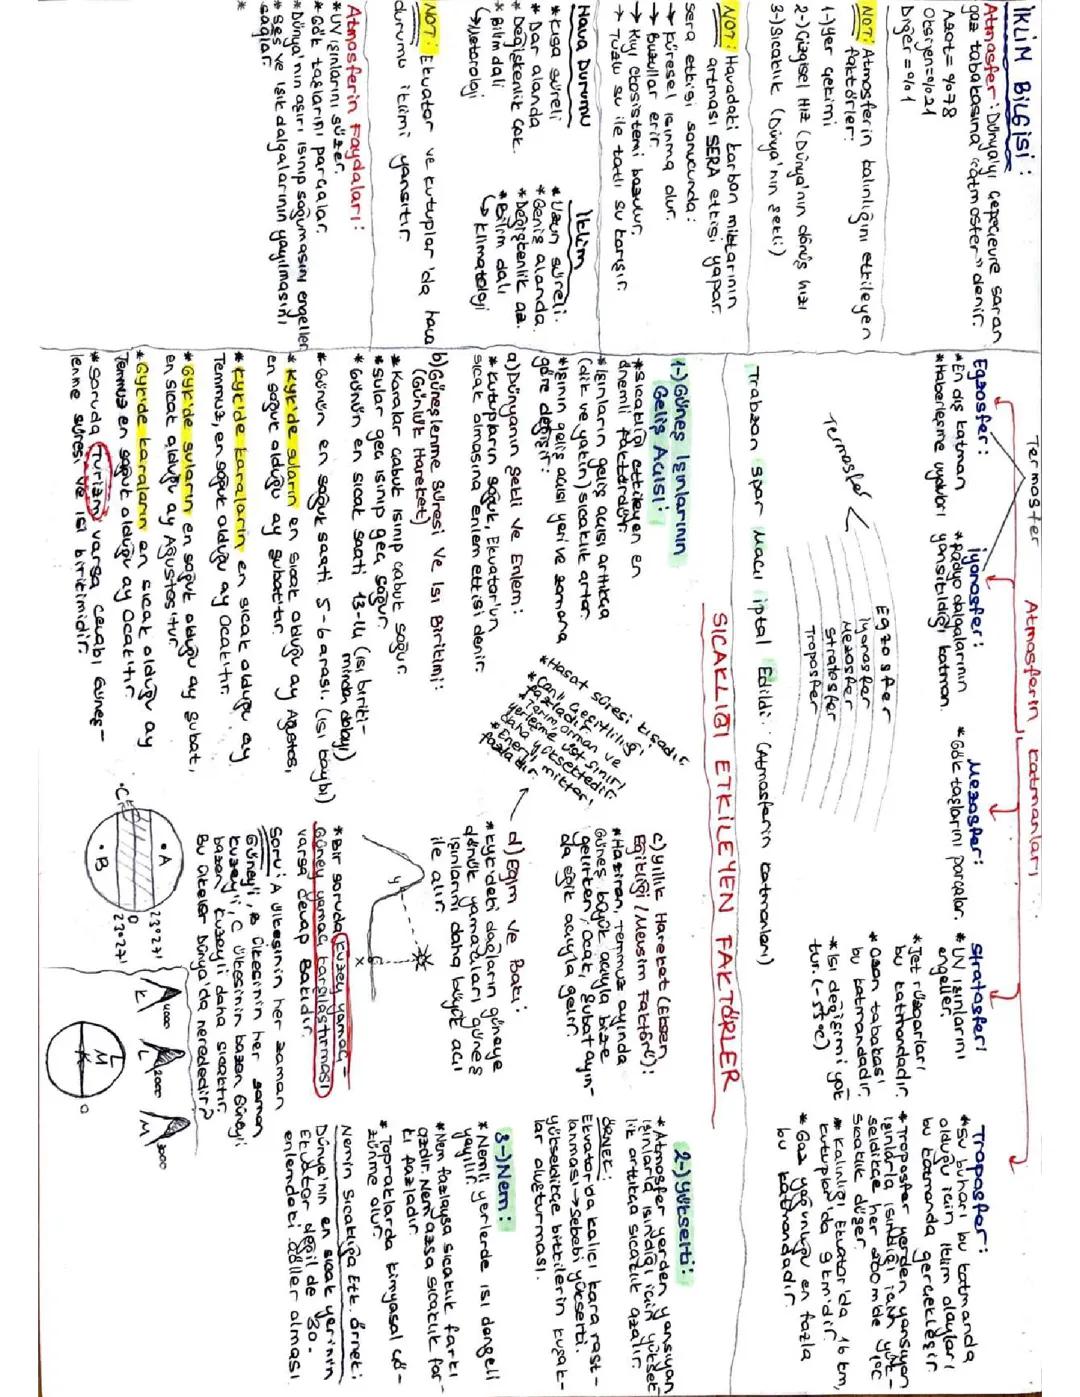 İKLİM BİLGİSİ:
Atmosfer: Dünyayı çepeçevre saran
gaz tabakasına "atmosfer" denir.
Azot = %78
Oksijen = %21
Diğer = %1
NOT: Atmosferin kalınlığını etkileyen
faktörler:
1-) Yer çekimi
2-) Çizgisel Hız (Dünya'nın dönüş hızı
3-) Sıcaklık (Dünya'nın şekli)
NOT: Havadaki karbon miktarının
artması SERA etkisi yapar.
Sera etkisi sonucunda:
→ Küresel ısınma olur.
→ Buzullar erir.
→ Kıyı ekosistemi bozulur.
→ Tuzlu su ile tatlı su karışır.
Hava Durumu
* Kısa süreli
* Dar alanda
* Değişkenlik çok.
* Bilim dalı
İklim
* Uzun süreli.
* Geniş alanda.
* Değişkenlik az.
* Bilim dalı
↳ Klimatoloji
NOT: Ekvator ve kutuplar'da hava
durumu iklimi yansıtır.
Atmosferin Faydaları:
* UV ışınlarını süzer.
* Gök taşlarını parçalar.
* Dünya'nın aşırı ısınıp soğumasını engeller
* Ses ve ışık dalgalarının yayılmasını
sağlar.
*
Atmosferin katmanları
Termosfer
Egzosfer:
* En dış katman
* Haberleşme uyduları
İyonosfer:
* Radyo dalgalarının
yansıtıldığı katman.
Mezosfer:
* Gök taşlarını parçalar.
Stratosfer:
* UV ışınlarını
engeller.
* Jet rüzgarları
bu katmandadır.
* Ozon tabakası
bu katmandadır.
* Isı değişimi yok
tur.
Troposfer:
* Su buharı bu katmanda
olduğu için iklim olayları
bu katmanda gerçekleşir.
* Troposfer yerden yansıyan
ışınlarla ısındığı için yük-
seldikçe her 200 m'de 1°C
sıcaklık düşer.
* Kalınlığı Ekvator'da 16 km,
kutuplar'da 9 km'dir.
* Gaz yoğunluğu en fazla
bu katmandadır.
Termosfer
Egzosfer
İyonosfer
Mezosfer
Stratosfer
Troposfer
Trabzon spor Maçı İptal Edildi. (Atmosferin katmanları)
SICAKLIĞI ETKİLEYEN FAKTÖRLER
1-) Güneş Işınlarının
Geliş Açısı:
* Sıcaklığı etkileyen en
önemli faktördür.
* Işınların geliş açısı arttıkça
(dik ve yakın) sıcaklık artar.
* Işının geliş açısı yeri ve zamana
göre değişir:
a) Dünyanın Şekli ve Enlem:
* Kutupların soğuk, Ekvator'un
sıcak olmasına enlem etkisi denir.
b) Güneşlenme Süresi Ve Isı Birikimi:
(Günlük Hareket)
* Karalar çabuk ısınıp çabuk soğur.
* Sular geç ısınıp geç soğur.
* Günün en sıcak saati 13-14 (ısı biriki-
minden dolayı)
* Günün en soğuk saati 5-6 arası. (ısı kaybı)
* KYK'de suların en sıcak olduğu ay Ağustos,
en soğuk olduğu ay Şubat'tır.
* KYK'de karaların en sıcak olduğu ay
Temmuz, en soğuk olduğu ay Ocak'tır.
* GYK'de suların en soğuk olduğu ay Şubat,
en sıcak olduğu ay Ağustos'tur.
* GYK'de karaların en sıcak olduğu ay
Temmuz en soğuk olduğu ay Ocak'tır.
* Soruda Turizm varsa cevabı Güneş-
lenme süresi ve ısı birikimidir.
c) Yıllık Hareket (Eksen
Eğikliği / Mevsim Faktörü):
* Haziran, Temmuz ayında
Güneş büyük açıyla bize
gelirken, Ocak, Şubat ayın-
da eğik açıyla gelir.
d) Eğim ve Bakı:
* KYK'deki dağların güneye
dönük yamaçları güneş
ışınlarını daha büyük açı
ile alır.
* Hasat süresi kısadır
* Canlı çeşitliliği
fazladır
* Tarım, orman ve
yerleşme üst sınırı
daha yüksektedir
* Enerji miktarı
fazladır
y
x
G
* Bir soruda kuzey yamaç-
Güney yamaç karşılaştırması
varsa cevap Bakıdır.
Soru: A ülkesinin her zaman
Güneyi, B ülkesinin her zaman
kuzeyi, C ülkesinin bazen Güneyi
bazen kuzeyi daha sıcaktır.
Bu ülkeler Dünya'da nerededir?
A
B
C
23°27'
0
23°27'
K
L
M
1000
2000
3000
L
M
K
0
2-) Yükselti:
* Atmosfer yerden yansıyan
ışınlarla ısındığı için yüksek
lik arttıkça sıcaklık azalır.
ÖRNEK:
Ekvator'da kalıcı kara rast-
lanması → Sebebi yükselti.
Yükseldikçe bitkilerin kuşak-
lar oluşturması.
3-) Nem:
* Nemli yerlerde ısı dengeli
yayılır.
* Nem fazlaysa sıcaklık farkı
azdır. Nem azsa sıcaklık far-
kı fazladır.
* Topraklarda kimyasal çö-
zünme olur.
Nemin Sıcaklığa Etk. Örnek:
Dünya'nın en sıcak yerinin
Ekvator değil de 30.
enlemdeki çöller olması.